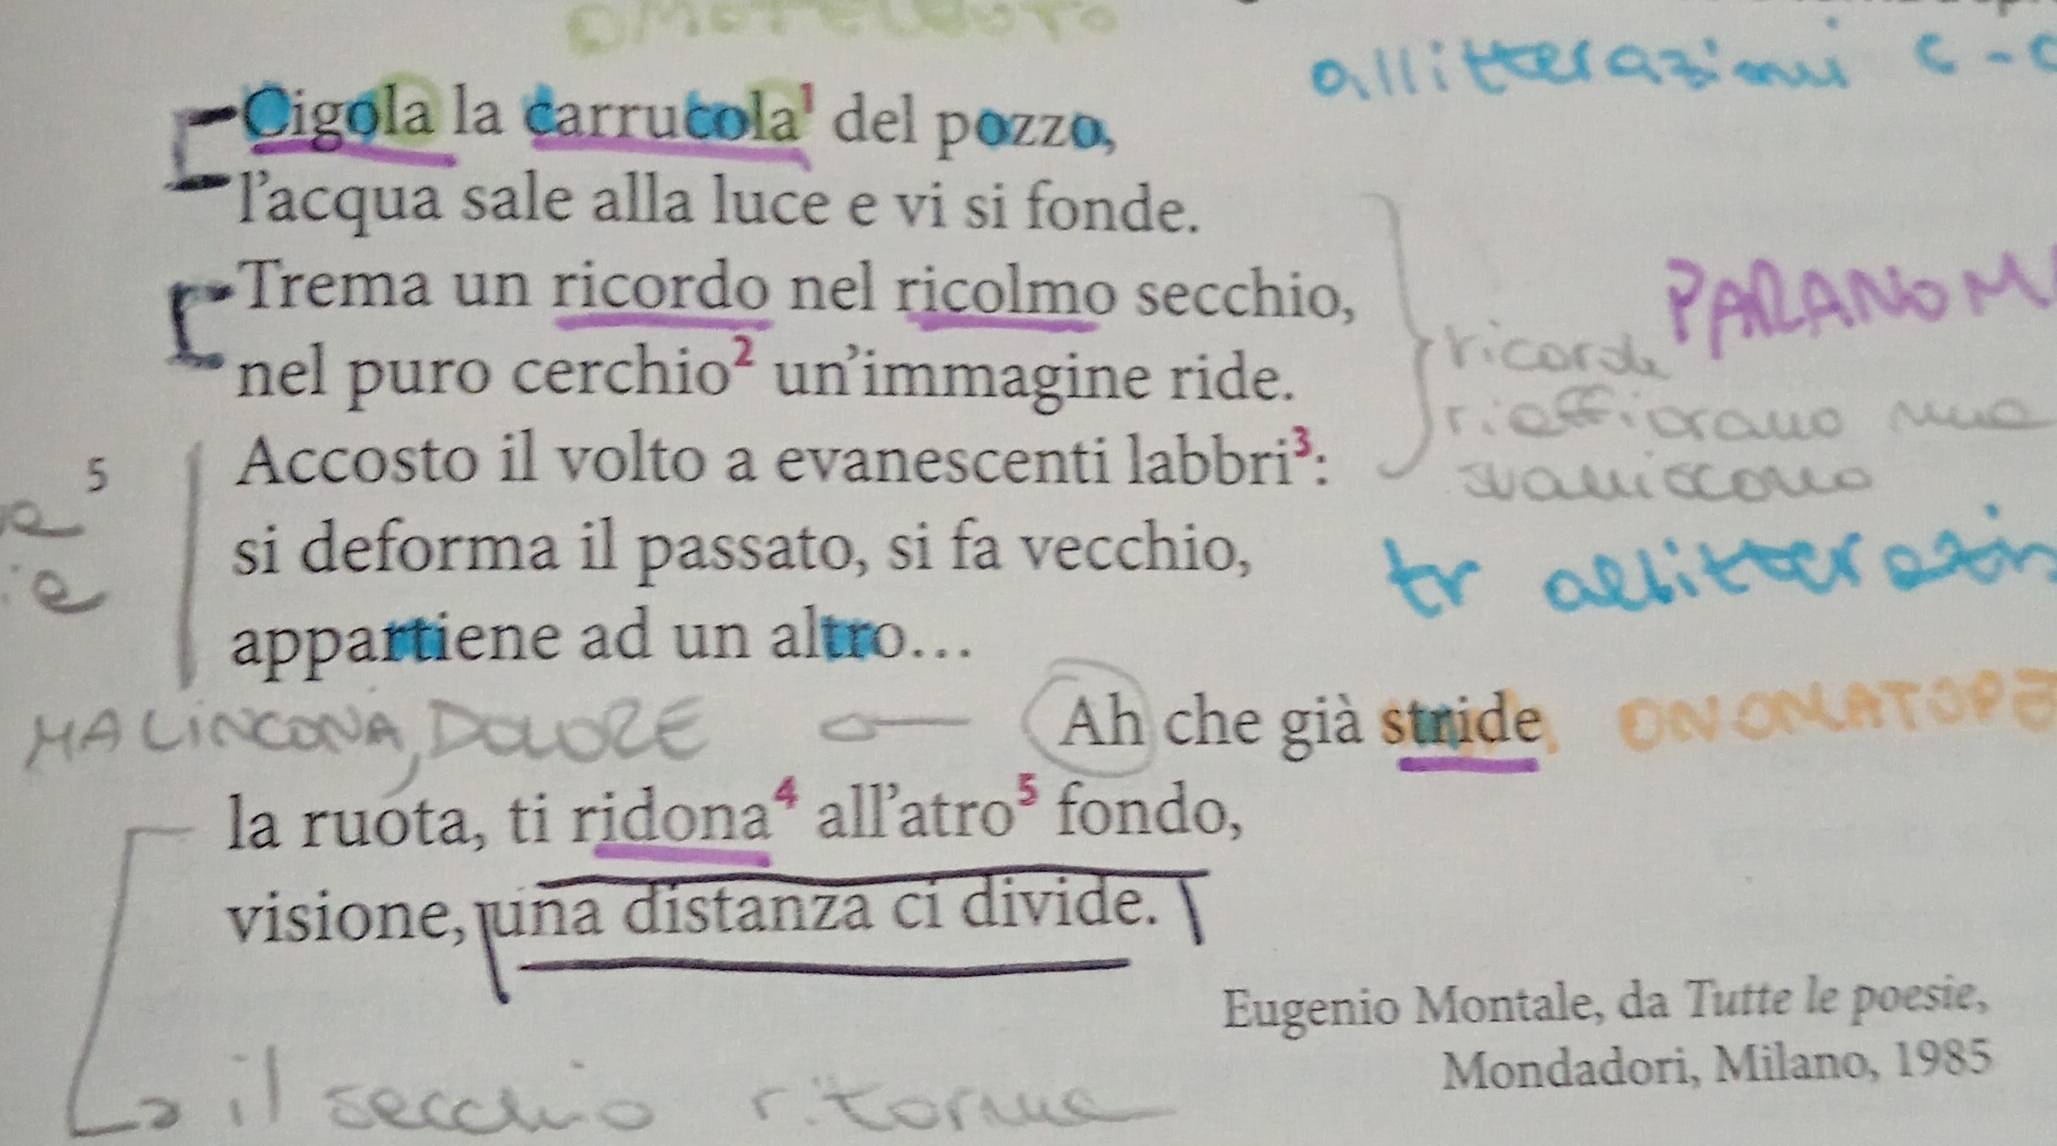 OMOTELEUTO
allitterazioni c - c
Cigola la carrucola¹ del pozzo,
l'acqua sale alla luce e vi si fonde.
Trema un ricordo nel ricolmo secchio,
PARANOM
nel puro cerchio² un'immagine ride.
ricordi
riaffiorano ma
svaniscono
5 Accosto il volto a evanescenti labbri³:
si deforma il passato, si fa vecchio,
tr allitterazion
appartiene ad un altro...
MALINCONIA, DOLORE
Ah che già stride
ONOMATOPE
la ruota, ti ridona⁴ all'atro⁵ fondo,
visione, una distanza ci divide.
Eugenio Montale, da Tutte le poesie,
Mondadori, Milano, 1985
il secchio ritorna